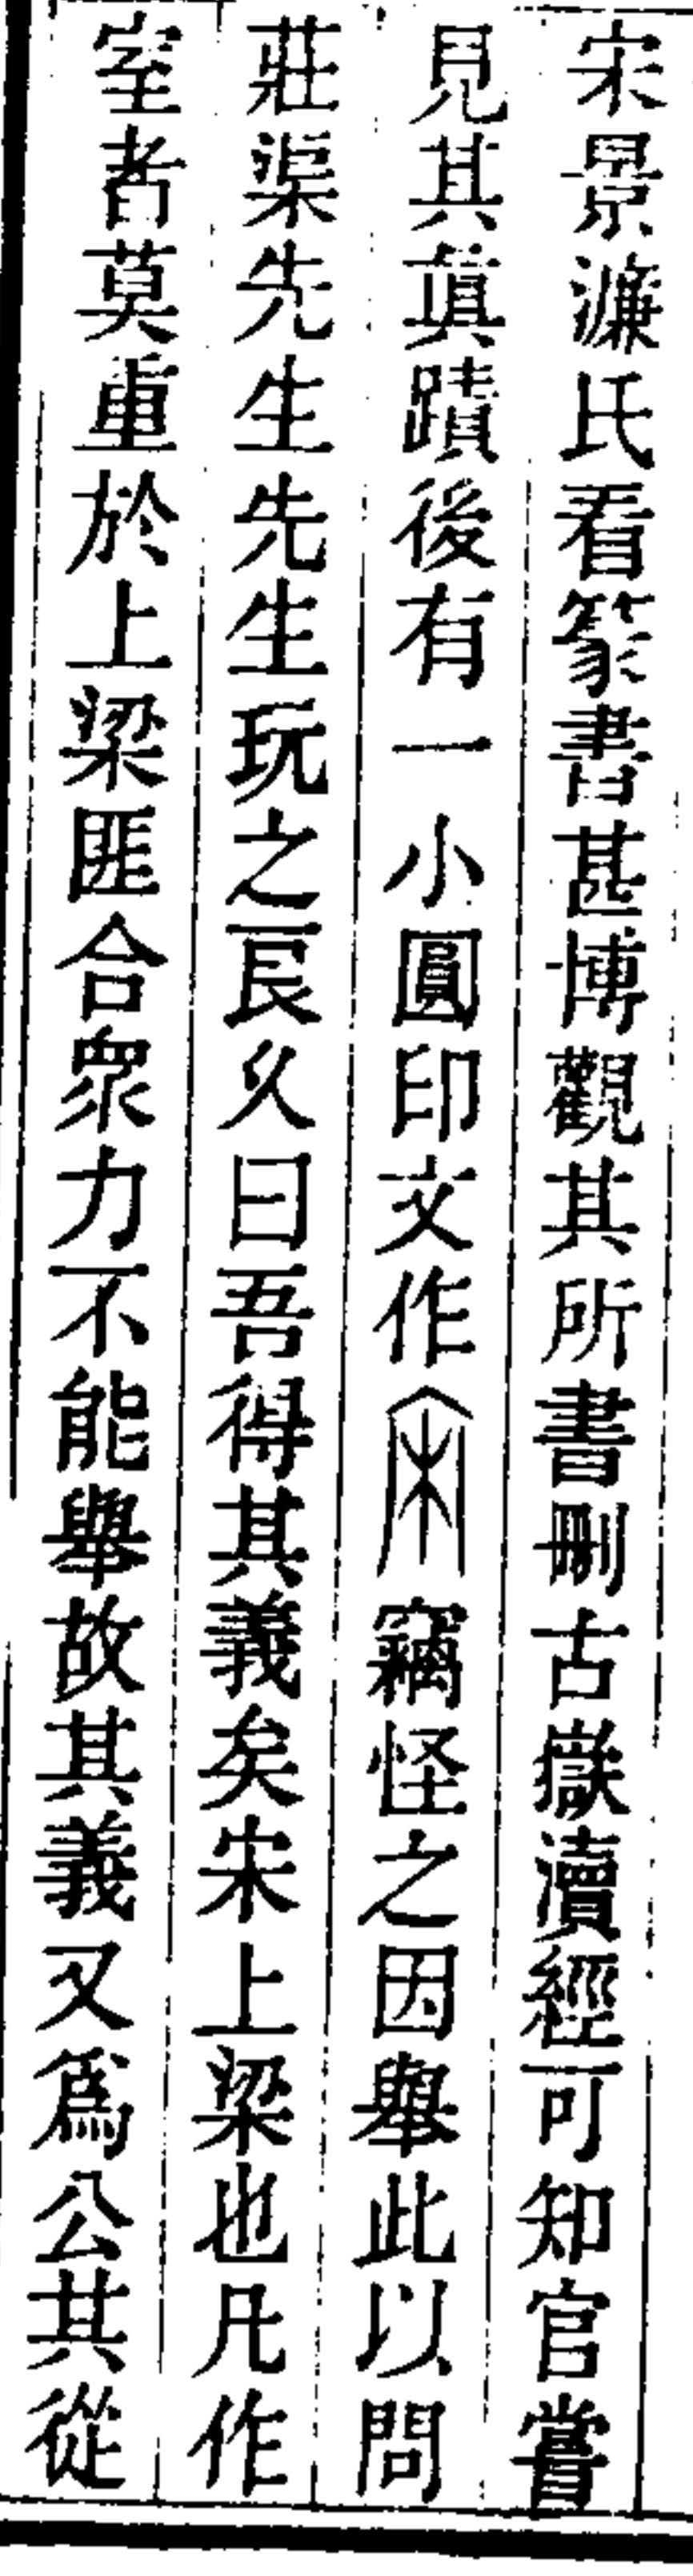 宋景濂氏看篆書甚博觀其所書刪古嶽瀆經可知官嘗
見其眞蹟後有一小圓印文作竊怪之因舉此以問
莊渠先生先生玩之良久曰吾得其義矣宋上梁也凡作
室者莫重於上梁匪合衆力不能舉故其義又爲公其從